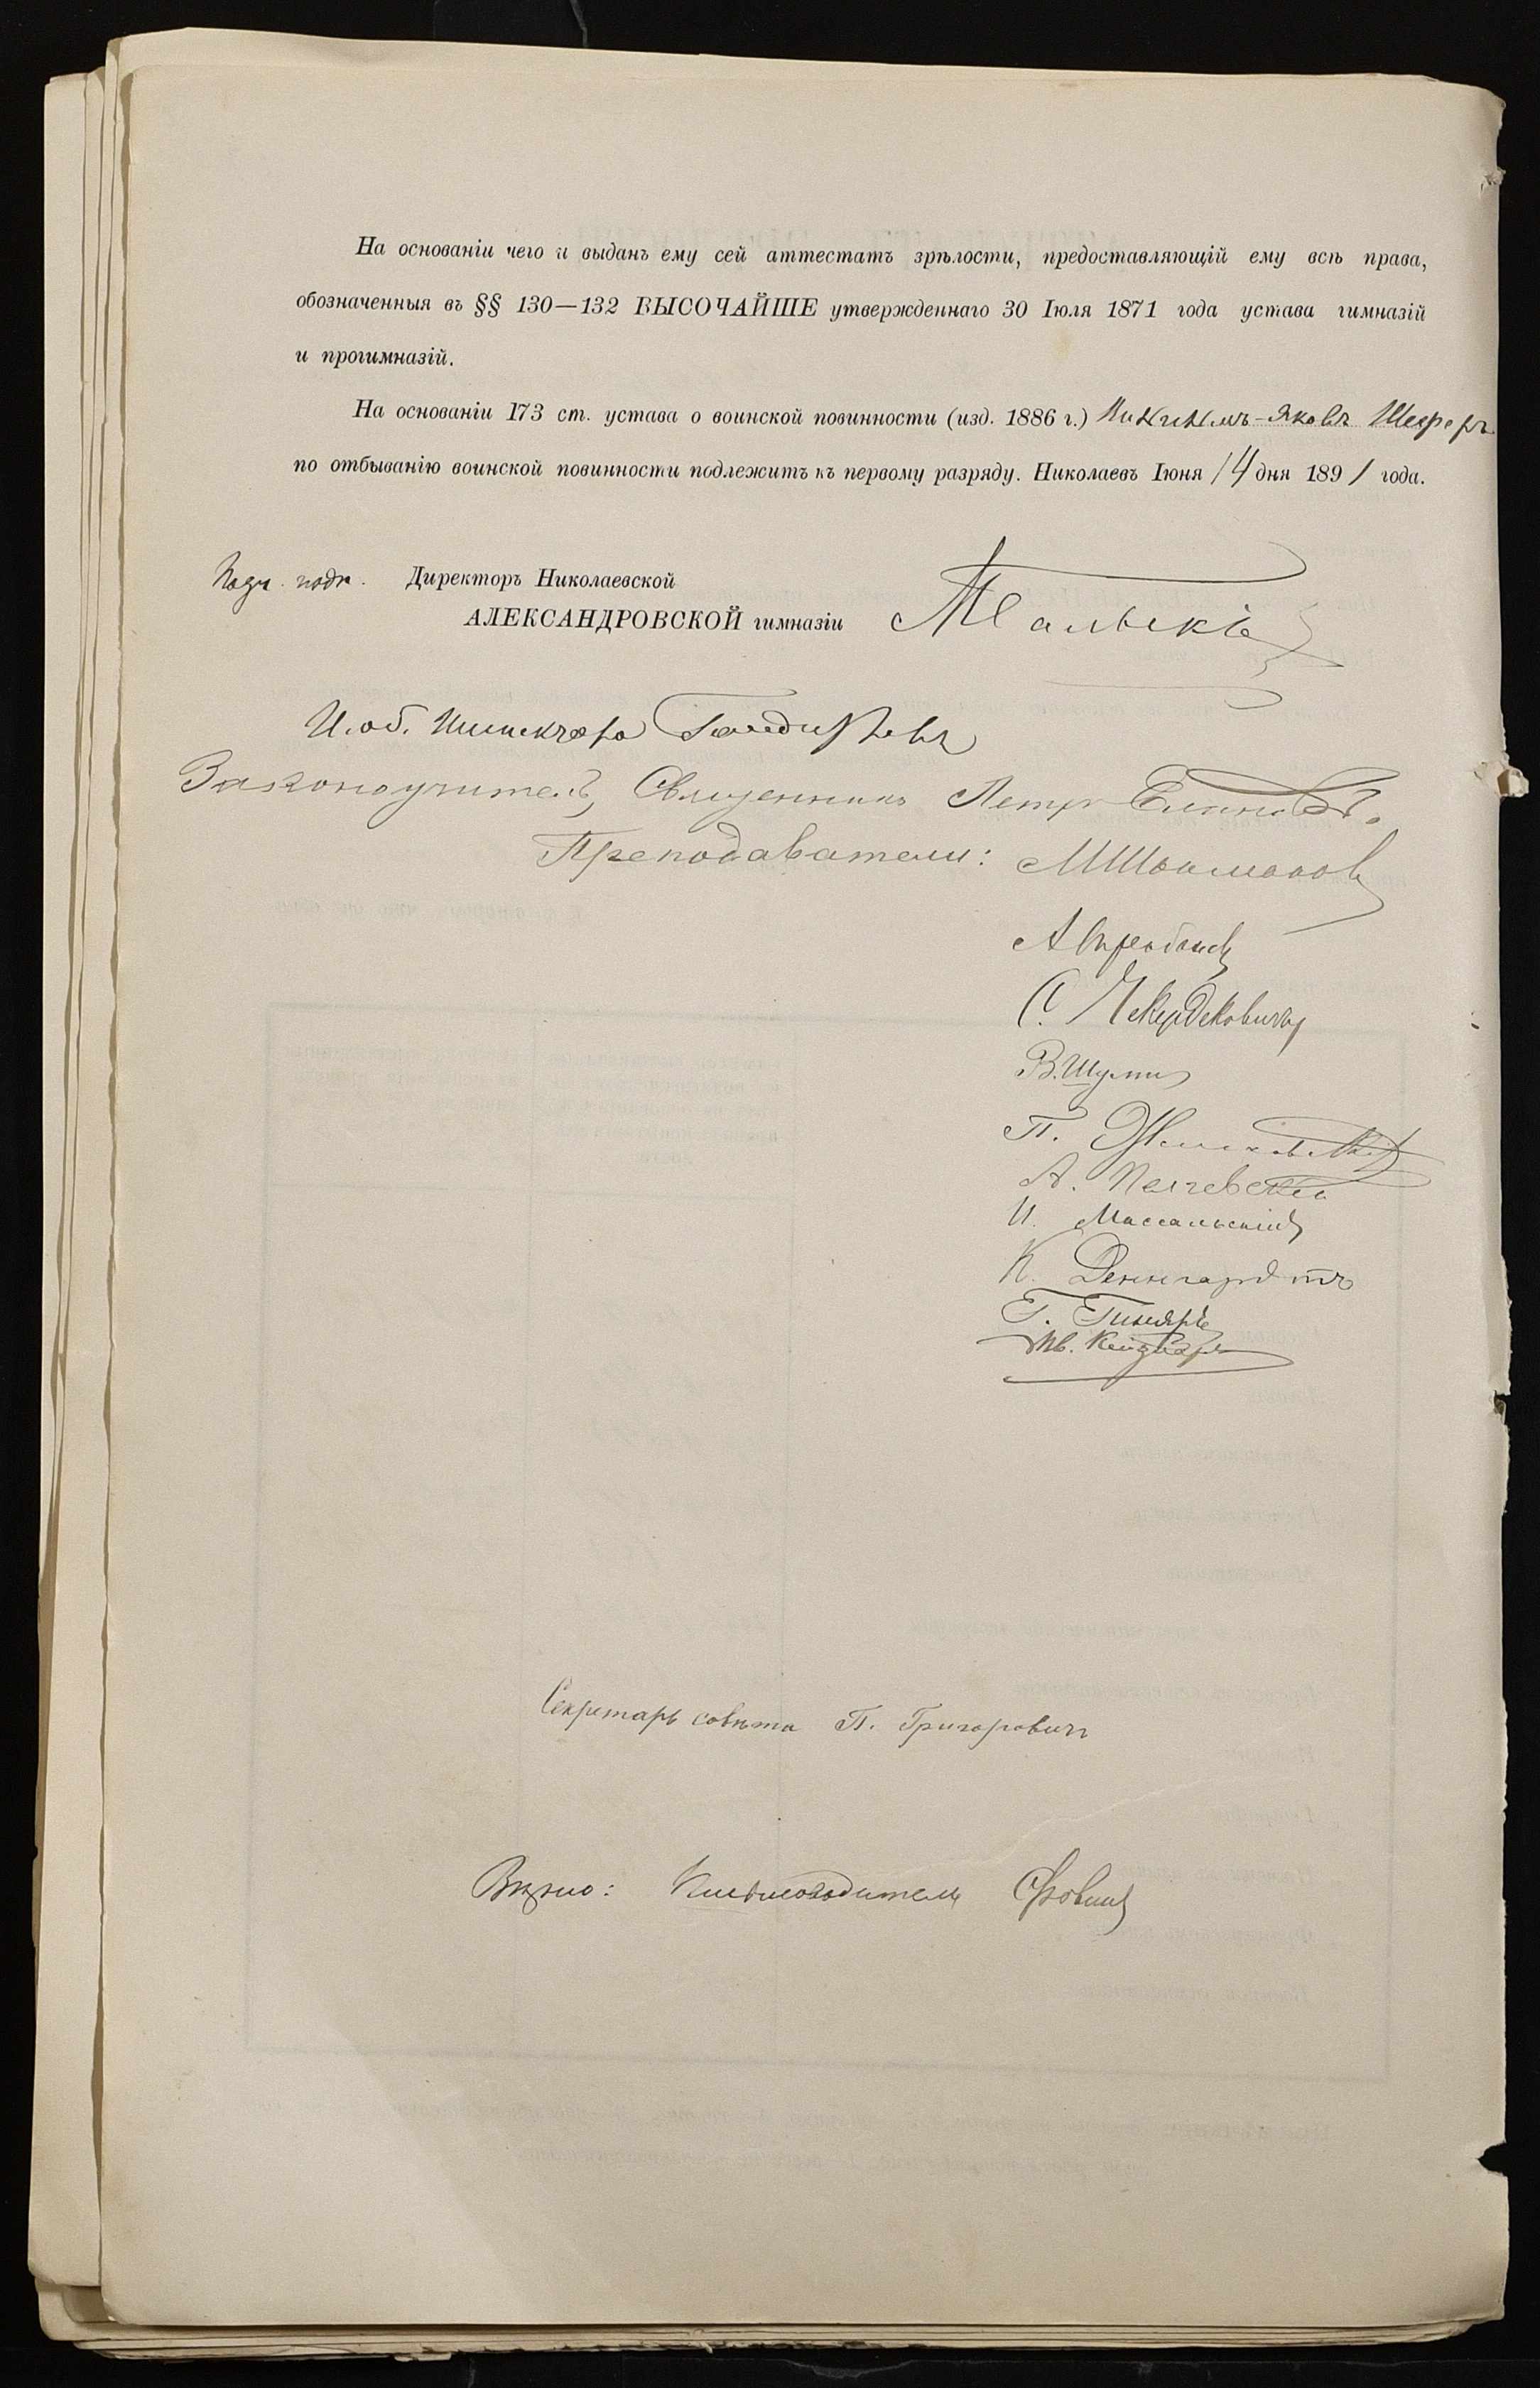 На основаніи чего и выданъ ему сей аттестатъ зрѣлости, предоставляющій ему всѣ права,
обозначенныя въ §§ 130—132 ВЫСОЧАЙШЕ утвержденнаго 30 Іюля 1871 года устава гимназій
и прогимназій.
На основаніи 173 ст. устава о воинской повинности (изд. 1886 г.) Яковъ Шеферъ
по отбыванію воинской повинности подлежитъ къ первому разряду. Николаевъ Іюня 14 дня 1891 года.
Подл. подп. Директоръ Николаевской
АЛЕКСАНДРОВСКОЙ гимназіи
И. об. Инспектора
Законоучитель, Священникъ Петръ
Преподаватели:
С.
В.
П.
А.
И. Массальскій
К. Деннгардтъ
Г.
Секретарь совѣта П. Григоровичъ
Вѣрно: Письмоводитель